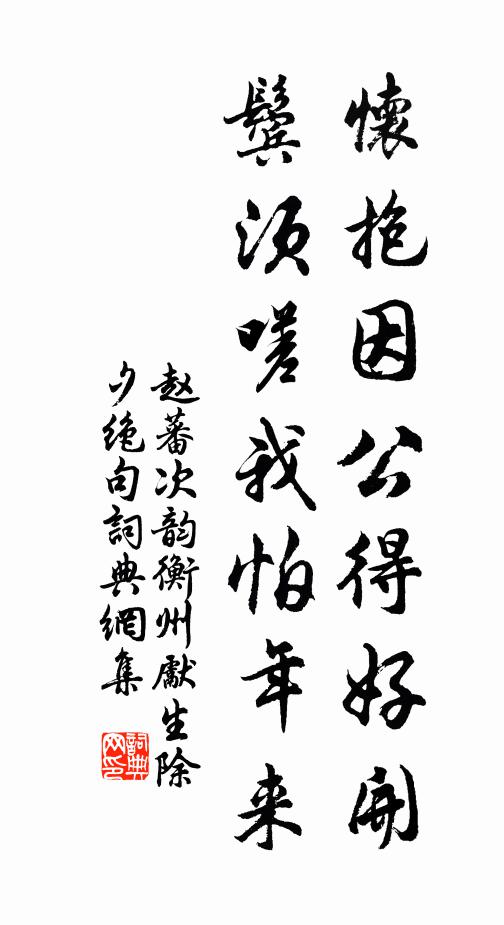 懷抱因公得好開
鬢須嗟我怕年来
赵蕃次韵衡州獻生除
夕绝句詞典網集
詞典網印